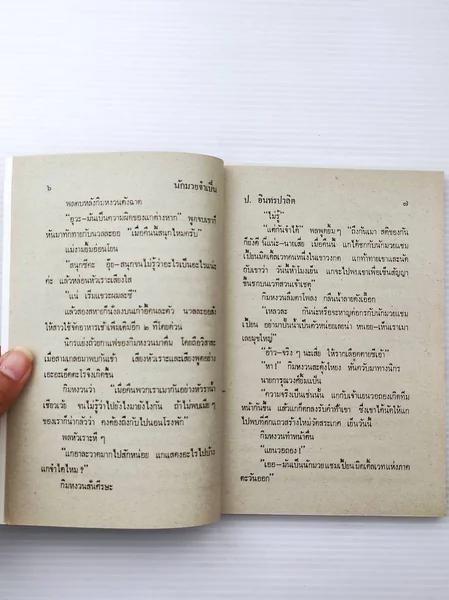 ๖ นักมวยจำเป็น
พลตบหลังกิมหงวนดังฉาด
“อุวะ-มันเป็นความผิดของแกต่างหาก” พูดจบเขาก็
หันมาทักทายกับนวลละออย “เมื่อคืนนี้สนุกไหมครับ”
แม่งามยิ้มอ่อนโยน
“สนุกซีคะ อุ๊ย-สนุกจนไม่รู้ว่าอะไรเป็นอะไรแน่ะ
ค่ะ แล้วหล่อนหัวเราะเสียงใส
“แน่ เริ่มแขวะผมละซี”
แล้วสองสหายก็นั่งลงบนเก้าอี้คนละตัว นวลละออยสั่ง
ให้สาวใช้จัดอาหารเช้าเพิ่มเติมอีก ๒ ที่โดยด่วน
นิกรแย่งถ้วยกาแฟของกิมหงวนมาดื่ม โดยถือวิสาสะ
เมื่อสามเกลอมาพบกันเข้า เสียงหัวเราะและเสียงพูดอย่าง
เอะอะเอ็ดตะโรจึงเกิดขึ้น
กิมหงวนว่า “เมื่อคืนพวกเราเมากันอย่างหัวราน้ำ
เชียวเว้ย จนไม่รู้ว่าไปยังไงมายังไงกัน ถ้าไม่พบเมีย ๆ
ของเราก็น่ากลัวว่า คงต้องถึงกับไปนอนโรงพัก”
พลหัวเราะหึ ๆ
“แกอาละวาดมากไปสักหน่อย แกแสดงอะไรไปบ้าง
แกจำได้ไหม ?”
กิมหงวนสั่นศีรษะ
ป. อินทรปาลิต ๗
“ไม่รู้”
“แต่กันจำได้ พลพูดยิ้ม ๆ “ถึงกันเมา สติของกัน
ก็ยังดี นี่แน่ะ-นายเสี่ย เมื่อคืนนี้ แกได้ชกกับนักมวยแชม
เปี้ยนมิดเดิ้ลเวทคนหนึ่งในเขาวงกต แกท้าทายเขาและนัด
กับเขาว่า วันนี้ห้าโมงเย็น แกจะไปพบเขาเพื่อเซ็นสัญญา
ขึ้นชกบนเวทีสวนเจ้าเชตุ”
กิมหงวนลืมตาโพลง กลืนน้ำลายดังเอื๊อก
“เหลวละ กันน่ะหรือจะหาญต่อกรกับนักมวยแชม
เปี้ยน อย่ามาปั้นน้ำเป็นตัวหน่อยเลยน่า หนอย-เห็นเราเมา
เลยมุขใหญ่”
“อ้าว-จริง ๆ นะเสี่ย ให้รากเลือดตายซีเอ้า”
“หา !” กิมหงวนสะดุ้งโหยง หันควับมาทางนิกร
นายการุณวงศ์ยิ้มแป้น
“ความจริงเป็นเช่นนั้น แกกับเจ้าแยนวอลลองเกิดทิ่ม
หน้ากันขึ้น แล้วแกก็ตกลงรับคำท้าเขา ซึ่งเขาได้นัดให้แก
ไปพบที่ตึกแถวสร้างใหม่วัดสระเกศ เย็นวันนี้
กิมหงวนทำหน้าตื่น
“แยนวอลลอง !”
“เออ-มันเป็นนักมวยแชมเปี้ยนมิดเดิ้ลเวทแห่งภาค
ตะวันออก”